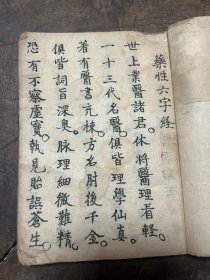 藥性六字経
世上業醫諸君。休將醫理看輕。
一十三代名醫。俱皆理學仙真。
著有醫書充棟。方名肘後千金。
俱皆詞旨深奥。脉理細微難精。
恐有不察虛實。執見貽誤蒼生。